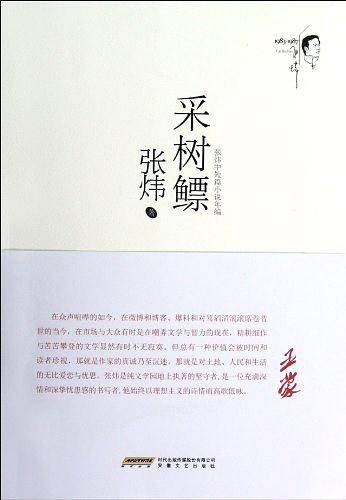 1983-1987
采树鳔
张炜中短篇小说年编
张炜
著
在众声喧哗的如今，在微博和博客、爆料和对骂滔滔滚滚席卷普
世的当今，在市场与大众有时是在嘲弄文学与智力的现在，精耕细作
与苦苦攀登的文学显然有时不无寂寞。但总有一种价值会被时间和
读者珍视，那就是作家的真诚乃至沉迷，那就是对土地、人民和生活
的无比爱恋与忧思。张炜是纯文学园地上执著的坚守者，是一位充满深
情和深挚忧患感的书写者，他始终以理想主义的诗情雨高歌低咏。
王蒙
时代出版传媒股份有限公司
安徽文艺出版社